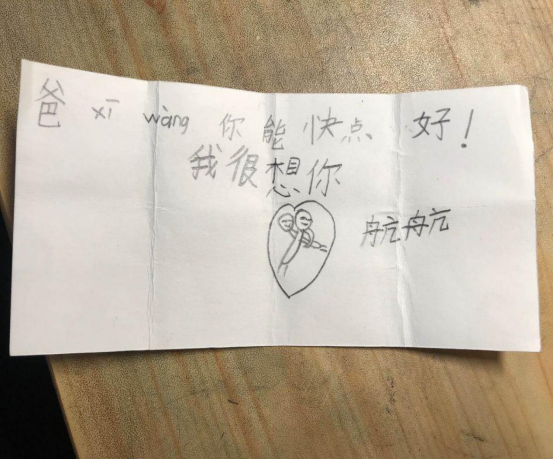 爸 xī wàng 你能快点 好！
我很想你
航航